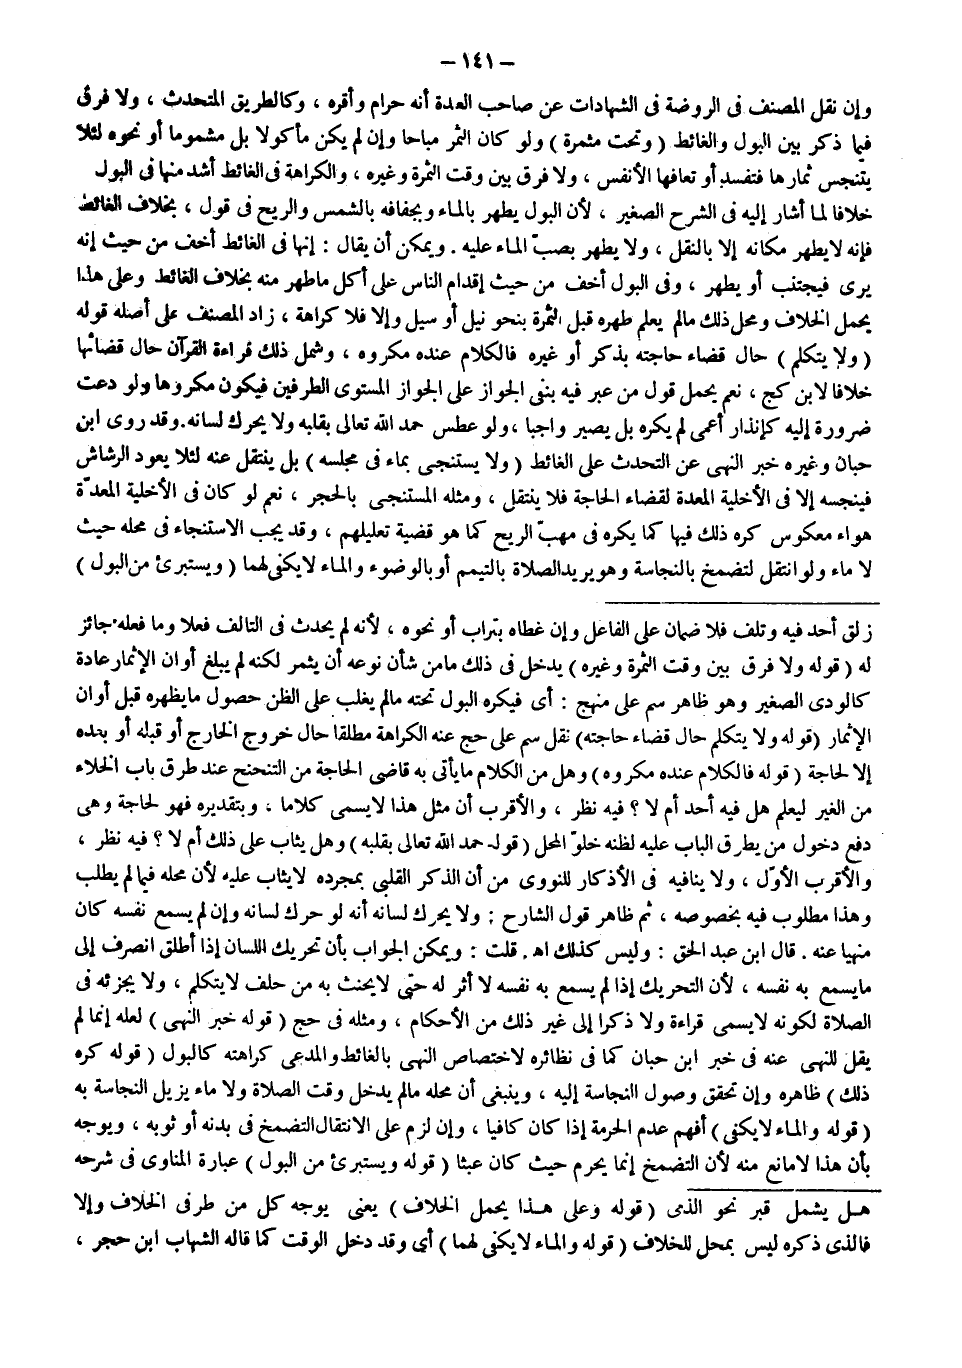 - ١٤١ -
وإن نقل المصنف فى الروضة فى الشهادات عن صاحب العدة أنه حرام وأقره ، وكالطريق المتحدث ، ولا فرق
فيما ذكر بين البول والغائط ( وتحت مثمرة ) ولو كان الثمر مباحا وإن لم يكن مأكولا بل مشموما أو نحوه لئلا
يتنجس ثمارها فتفسد أو تعافها الأنفس ، ولا فرق بين وقت الثمرة وغيره ، والكراهة فى الغائط أشد منها فى البول
خلافا لما أشار إليه فى الشرح الصغير ، لأن البول يطهر بالماء وبجفافه بالشمس والريح فى قول ، بخلاف الغائط
فإنه لايطهر مكانه إلا بالنقل ، ولا يطهر بصبّ الماء عليه . ويمكن أن يقال : إنها فى الغائط أخف من حيث إنه
يرى فيجتنب أو يطهر ، وفى البول أخف من حيث إقدام الناس على أكل ماطهر منه بخلاف الغائط وعلى هذا
يحمل الخلاف ومحل ذلك مالم يعلم طهره قبل الثمرة بنحو نيل أو سيل وإلا فلا كراهة ، زاد المصنف على أصله قوله
( ولا يتكلم ) حال قضاء حاجته بذكر أو غيره فالكلام عنده مكروه ، وشمل ذلك قراءة القرآن حال قضائها
خلافا لابن كج ، نعم يحمل قول من عبر فيه بنفى الجواز على الجواز المستوى الطرفين فيكون مكروها ولو دعت
ضرورة إليه كإنذار أعمى لم يكره بل يصير واجبا ، ولو عطس حمد الله تعالى بقلبه ولا يحرك لسانه . وقد روى ابن
حبان وغيره خبر النهى عن التحدث على الغائط ( ولا يستنجى بماء فى مجلسه ) بل ينتقل عنه لئلا يعود الرشاش
فينجسه إلا فى الأخلية المعدة لقضاء الحاجة فلا ينتقل ، ومثله المستنجى بالحجر ، نعم لو كان فى الأخلية المعدّة
هواء معكوس كره ذلك فيها كما يكره فى مهبّ الريح كما هو قضية تعليلهم ، وقد يجب الاستنجاء فى محله حيث
لا ماء ولو انتقل لتضمخ بالنجاسة وهو يريد الصلاة بالتيمم أو بالوضوء والماء لايكفى لهما ( ويستبرئ من البول )
زلق أحد فيه وتلف فلا ضمان على الفاعل وإن غطاه بتراب أو نحوه ، لأنه لم يحدث فى التالف فعلا وما فعله جائز
له ( قوله ولا فرق بين وقت الثمرة وغيره ) يدخل فى ذلك مامن شأن نوعه أن يثمر لكنه لم يبلغ أوان الإثمار عادة
كالودى الصغير وهو ظاهر سم على منهج : أى فيكره البول تحته مالم يغلب على الظن حصول مايظهره قبل أوان
الإثمار ( قوله ولا يتكلم حال قضاء حاجته ) نقل سم على حج عنه الكراهة مطلقا حال خروج الخارج أو قبله أو بعده
إلا لحاجة ( قوله فالكلام عنده مكروه ) وهل من الكلام مايأتى به قاضى الحاجة من التنحنح عند طرق باب الخلاء
من الغير ليعلم هل فيه أحد أم لا ؟ فيه نظر ، والأقرب أن مثل هذا لايسمى كلاما ، وبتقديره فهو لحاجة وهى
دفع دخول من يطرق الباب عليه لظنه خلوّ المحل ( قوله حمد الله تعالى بقلبه ) وهل يثاب على ذلك أم لا ؟ فيه نظر ،
والأقرب الأوّل ، ولا ينافيه فى الأذكار للنووى من أن الذكر القلبى بمجرده لايثاب عليه لأن محله فيما لم يطلب
وهذا مطلوب فيه بخصوصه ، ثم ظاهر قول الشارح : ولا يحرك لسانه أنه لو حرك لسانه وإن لم يسمع نفسه كان
منهيا عنه . قال ابن عبد الحق : وليس كذلك اه . قلت : ويمكن الجواب بأن تحريك اللسان إذا أطلق انصرف إلى
مايسمع به نفسه ، لأن التحريك إذا لم يسمع به نفسه لا أثر له حتى لايحنث به من حلف لايتكلم ، ولا يجزئه فى
الصلاة لكونه لايسمى قراءة ولا ذكرا إلى غير ذلك من الأحكام ، ومثله فى حج ( قوله خبر النهى ) لعله إنما لم
يقل للنهى عنه فى خبر ابن حبان كما فى نظائره لاختصاص النهى بالغائط والمدعى كراهته كالبول ( قوله كره
ذلك ) ظاهره وإن تحقق وصول النجاسة إليه ، وينبغى أن محله مالم يدخل وقت الصلاة ولا ماء يزيل النجاسة به
( قوله والماء لايكفى ) أفهم عدم الحرمة إذا كان كافيا ، وإن لزم على الانتقال التضمخ فى بدنه أو ثوبه ، ويوجه
بأن هذا لامانع منه لأن التضمخ إنما يحرم حيث كان عبثا ( قوله ويستبرئ من البول ) عبارة المناوى فى شرحه
هل يشمل قبر نحو الذى ( قوله وعلى هذا يحمل الخلاف ) يعنى يوجه كل من طرفى الخلاف وإلا
فالذى ذكره ليس بمحل للخلاف ( قوله والماء لايكفى لهما ) أى وقد دخل الوقت كما قاله الشهاب ابن حجر ،